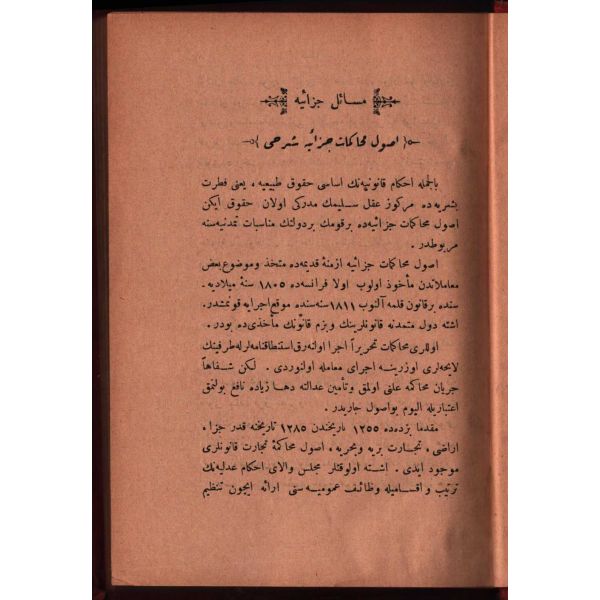 مسائل جزائیه
اصول محاكمات جزائیه شرحی
بالجمله احكام قانونیه‌نك اساسی حقوق طبیعیه ، یعنی فطرت
بشریه‌ده مركوز عقل سلیمك مدركی اولان حقوق ایكن
اصول محاكمات جزائیه‌ده برقومك بردولتك مناسبات تمدنیه‌سنه
مربوطدر .
اصول محاكمات جزائیه ازمنهٔ قدیمه‌ده متخذ و موضوع بعض
معاملاتدن مأخوذ اولوب اولا فرانسه‌ده ۱۸۰۵ سنهٔ میلادیه .
سنده برقانون قلمه آلنوب ۱۸۱۱ سنه‌سنده موقع اجرایه قونمشدر .
اشته دول متمدنه قانونلرینك و بزم قانونك مأخذی‌ده بودر .
اوللری محاكمات تحریراً اجرا اولنه‌رق استنطاقنامه‌لرله طرفینك
لایحه‌لری اوزرینه اجرای معامله اولنوردی . لكن شفاهاً
جریان محاكمه علنی اولمق و تأمین عدالته دها زیاده نافع بولنمق
اعتباریله الیوم بواصول جاریدر .
مقدما بزده‌ده ۱۲۵۵ تاریخندن ۱۲۸۵ تاریخنه قدر جزا ،
اراضی ، تجارت بریه و بحریه ، اصول محاكمهٔ تجارت قانونلری
موجود ایدی . اشته اولوقتلر مجلس والای احكام عدلیه‌نك
ترتیب و اقسامیله وظائف عمومیه‌سنی ارائه ایچون تنظیم